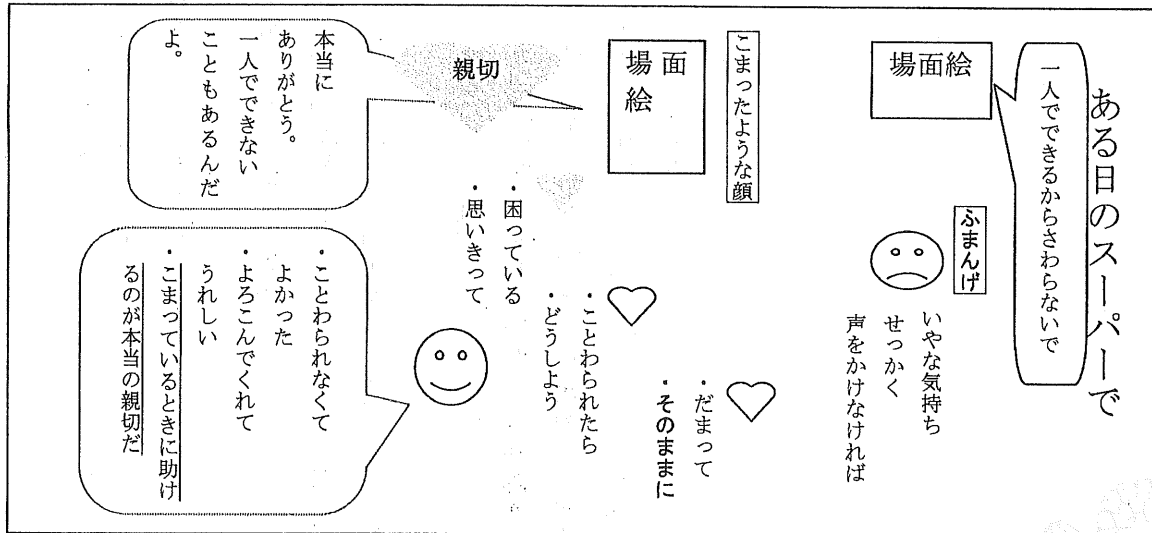 ある日のスーパーで
一人でできるからさわらないで
場面絵
ふまんげ
いやな気持ち
せっかく
声をかけなければ
こまったような顔
・だまって
・そのままに
場面
絵
・ことわられたら
・どうしよう
・困っている
・思いきって
親切
本当に
ありがとう。
一人でできない
こともあるんだ
よ。
・ことわられなくて
よかった
・よろこんでくれて
うれしい
・こまっているときに助け
るのが本当の親切だ